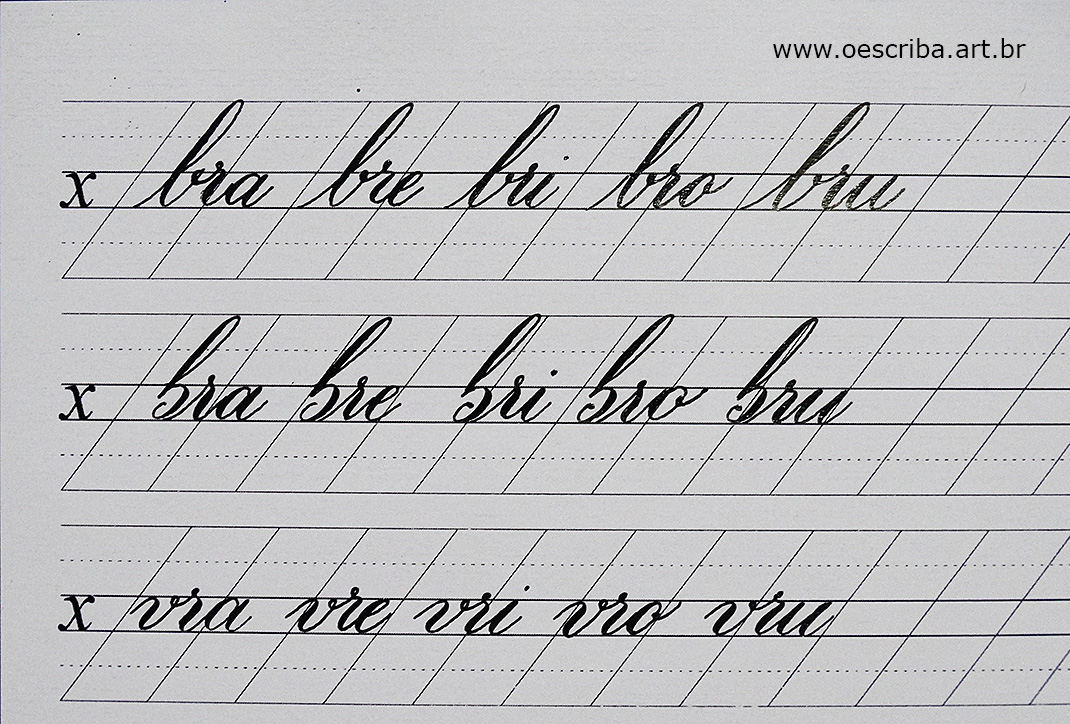 www.oescriba.art.br
x bra bre bri bro bru
x bra bre bri bro bru
x vra vre vri vro vru